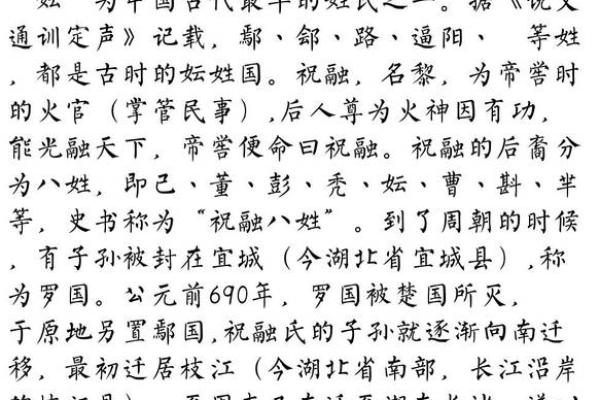 “妘”为中国古代最早的姓氏之一。据《说文
通训定声》记载，鄢、郐、路、逼阳、　等姓
，都是古时的妘姓国。祝融，名黎，为帝喾时
的火官（掌管民事）,后人尊为火神因有功，
能光融天下，帝喾便命曰祝融。祝融的后裔分
为八姓，即己、董、彭、秃、妘、曹、斟、芈
等，史书称为“祝融八姓”。到了周朝的时候
，有子孙被封在宜城（今湖北省宜城县）,称
为罗国。公元前690年，罗国被楚国所灭，
于原地另置鄢国,祝融氏的子孙就逐渐向南迁
移，最初迁居枝江（今湖北省南部，长江沿岸